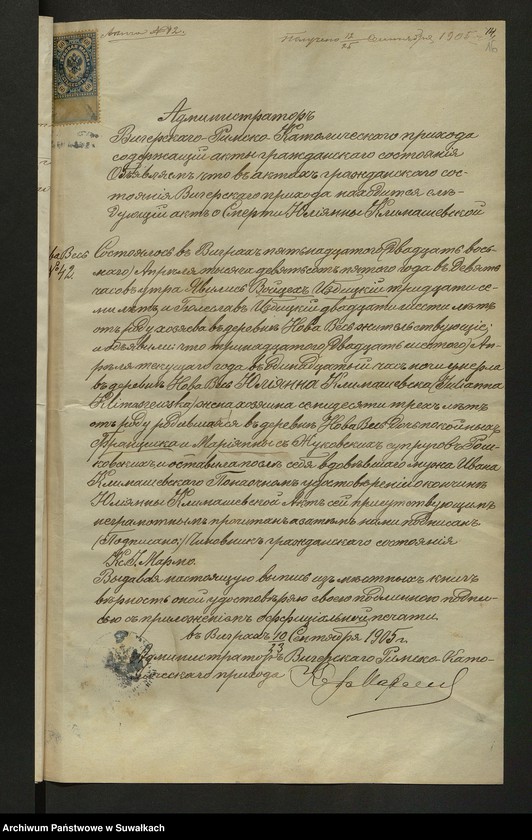 Акта № 42.
Получено 12/25 Сентября 1905 г.
14
Администраторъ
Вигерскаго-Римско-Католическаго прихода
содержащій акты гражданскаго состоянія
Объявляемъ что въ актахъ гражданскаго сос-
тоянія Вигерскаго прихода находится слѣ-
дующій актъ о Смерти Юліянны Климашевской
Нова Весь
№ 42.
Состоялось въ Виграхъ пятьнадцатого (Двадцать вось-
маго) Апрѣля тысяча девятьсотъ пятого года въ Девять
часовъ утра. Явились Войцехъ Издицкій тридцати се-
ми лѣтъ и Болеславъ Издицкій двадцати шести лѣтъ
отъ роду хозяева въ деревнѣ Нова Весь жительствующіе;
и объявили что тринадцатого (Двадцать шестого) Ап-
рѣля текущаго года въ одинадцатый часъ ночи умерла
въ деревнѣ Нова Весь Юліянна Климашевска (Julianna
Klimaszewska) жена хозяина семидесяти трехъ лѣтъ
отъ роду родившаяся въ деревнѣ Нова Весь Дочь покойныхъ
Францишка и Маріянны съ Жуковскихъ супруговъ Рош-
ковскихъ и оставила послѣ себя вдовѣвшаго мужа Ивана
Климашевскаго. По наочномъ удостовѣреніи о кончинѣ
Юліянны Климашевской Актъ сей присутствующимъ
неграмотнымъ прочитанъ а затѣмъ нами подписанъ
(Подписано:) Чиновникъ гражданскаго состоянія
Кс. І. Мармо.
Выдавая настоящую выпись изъ мѣстныхъ книгъ
вѣрность оной удостовѣряю своею подлинною подпи-
сью съ приложеніемъ оффиціальной печати.
въ Виграхъ 10/23 Сентября 1905 г.
Администраторъ Вигерскаго Римско-Като-
лическаго прихода
Archiwum Państwowe w Suwałkach